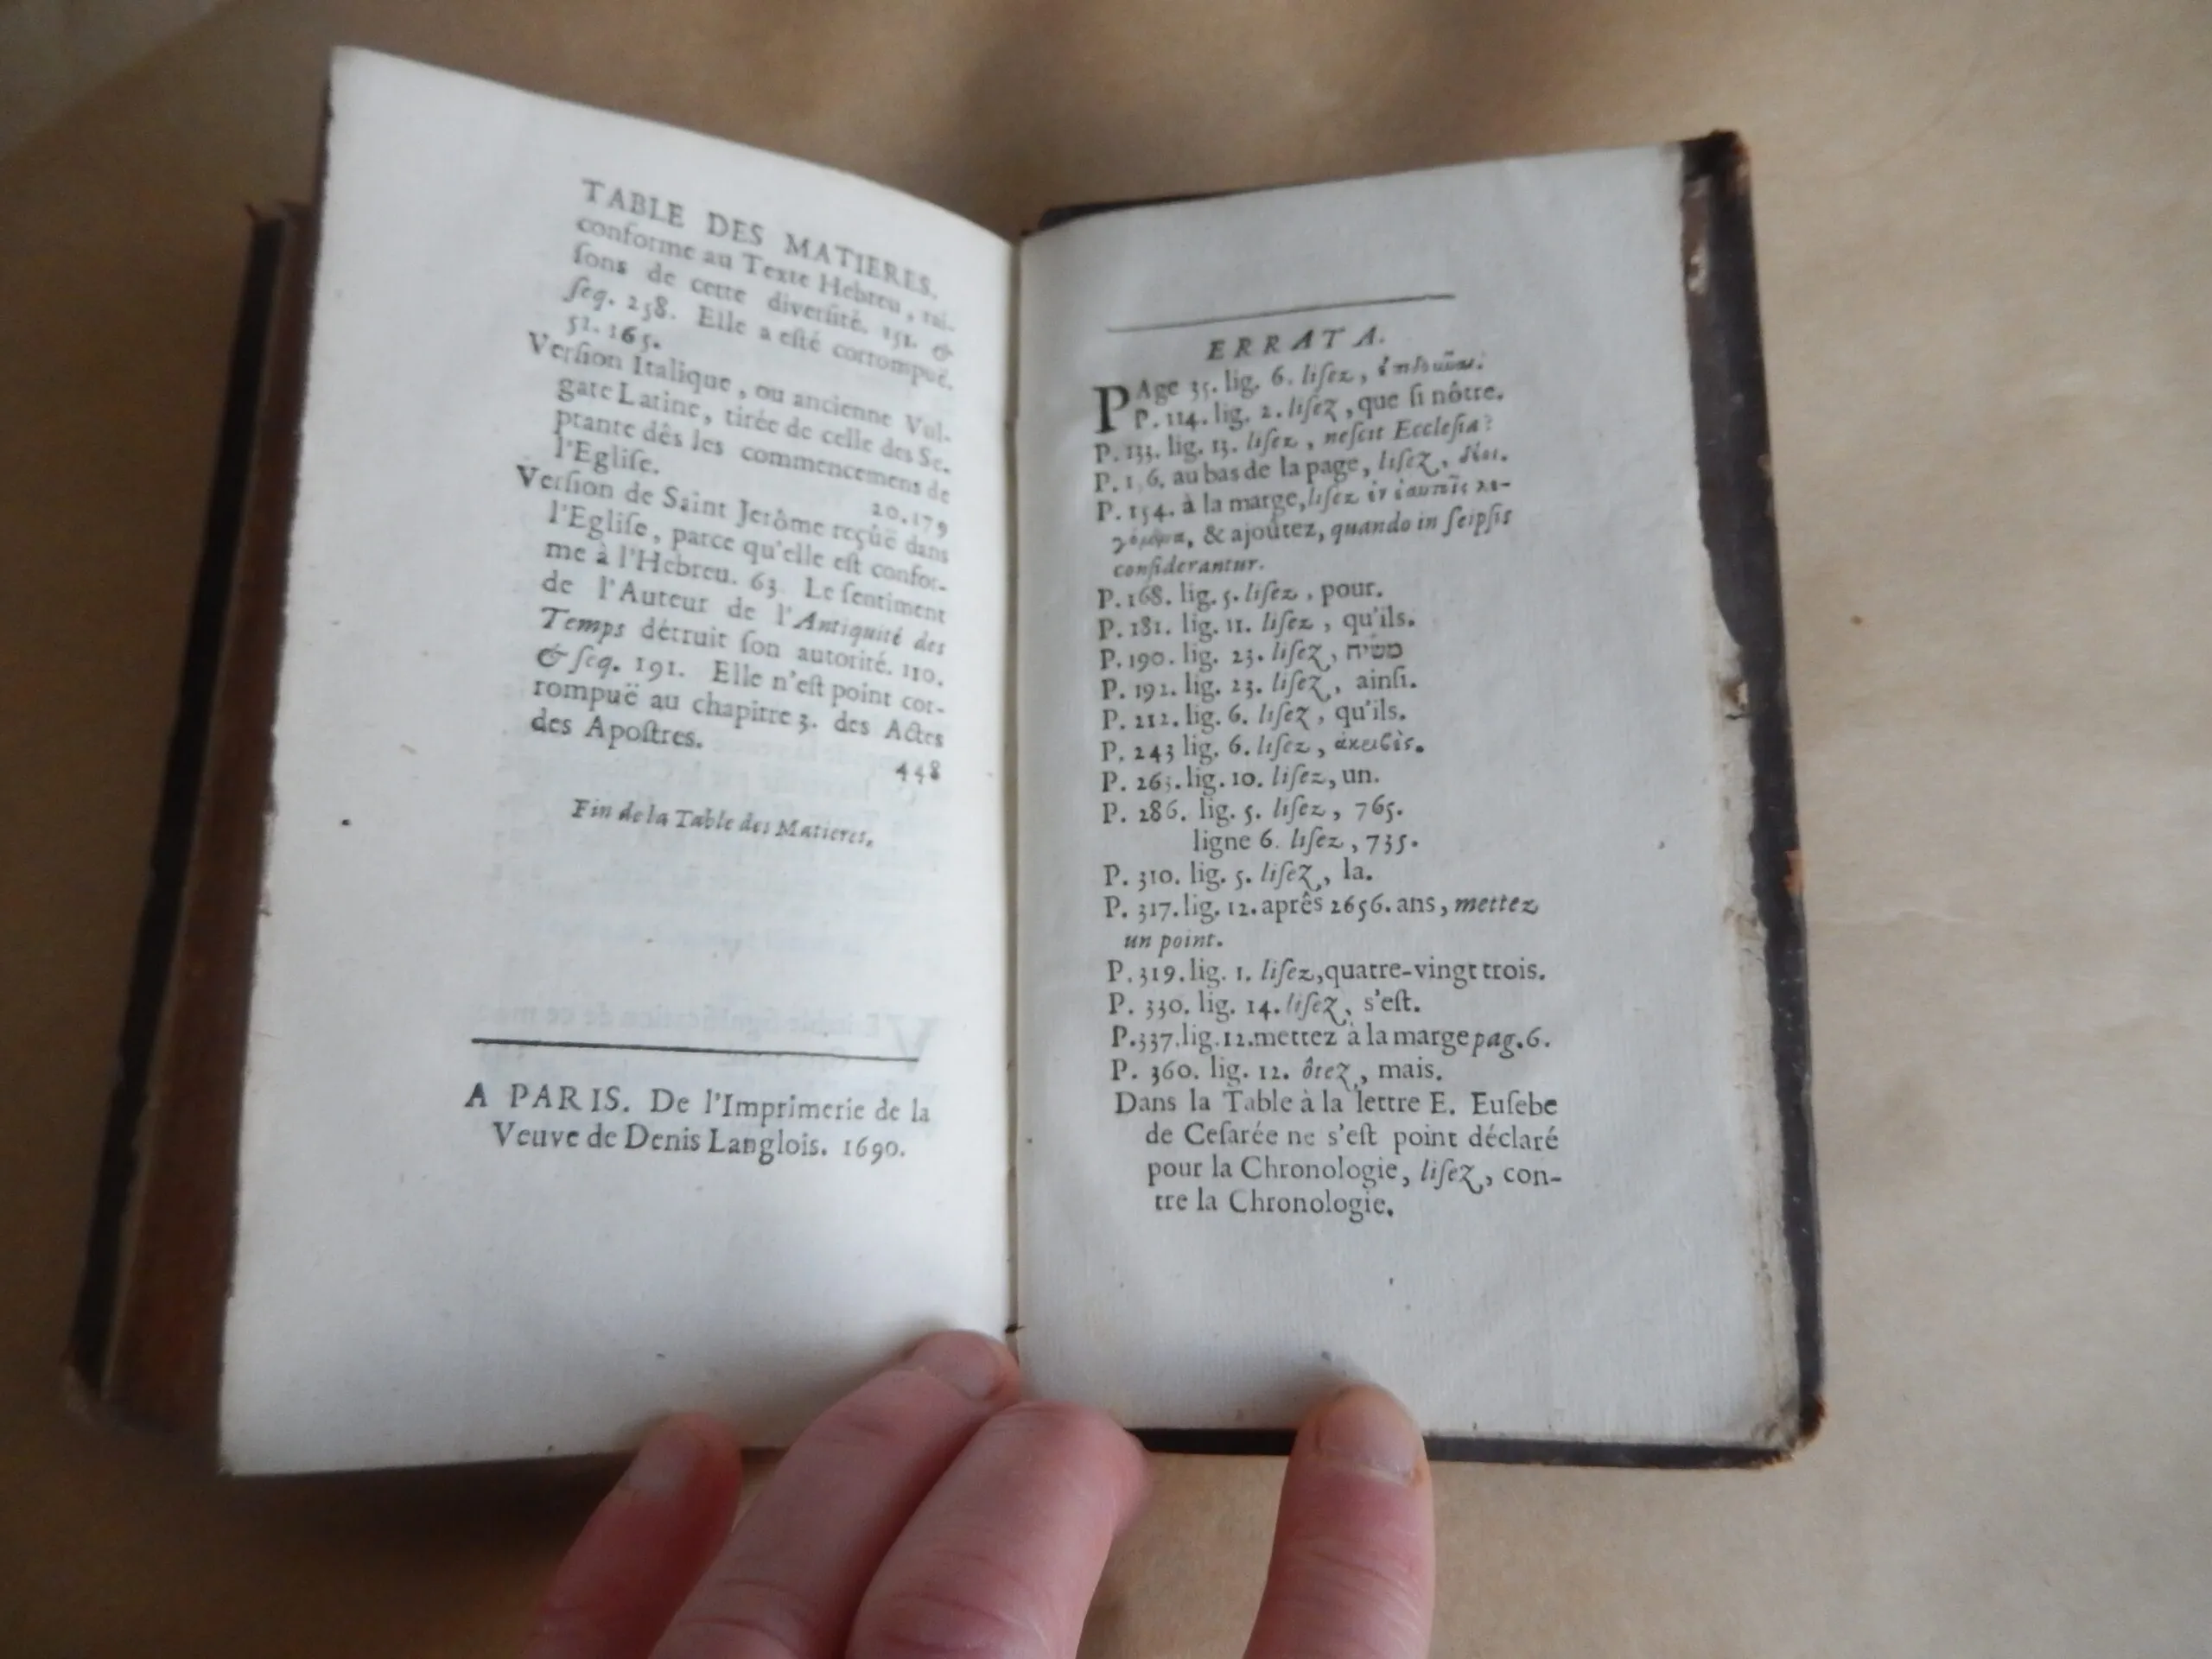 TABLE DES MATIERES.
conforme au Texte Hebreu, rai-
ſons de cette diverſité. 151. &
ſeq. 258. Elle a eſté corrompuë.
51. 165.
Verſion Italique, ou ancienne Vul-
gate Latine, tirée de celle des Se-
ptante dés les commencemens de
l'Egliſe. 20. 179
Verſion de Saint Jerôme reçûë dans
l'Egliſe, parce qu'elle eſt confor-
me à l'Hebreu. 63. Le ſentiment
de l'Auteur de l'Antiquité des
Temps détruit ſon autorité. 110.
& ſeq. 191. Elle n'eſt point cor-
rompuë au chapitre 3. des Actes
des Apoſtres. 448
Fin de la Table des Matieres.
A PARIS. De l'Imprimerie de la
Veuve de Denis Langlois. 1690.
ERRATA.
PAge 35. lig. 6. liſez,
P. 114. lig. 2. liſez, que ſi nôtre.
P. 133. lig. 13. liſez, neſcit Ecclesia?
au bas de la page, liſez,
P. 154. à la marge, liſez ἐν ἑαυτοῖς λε-
γόμενα, & ajoûtez, quando in ſeipſis
conſiderantur.
P. 168. lig. 5. liſez, pour.
P. 181. lig. 11. liſez, qu'ils.
P. 190. lig. 23. liſez, משיח
P. 192. lig. 23. liſez, ainſi.
P. 212. lig. 6. liſez, qu'ils.
P. 243 lig. 6. liſez, ἀκριβὲς.
P. 263. lig. 10. liſez, un.
P. 286. lig. 5. liſez, 765.
ligne 6. liſez, 735.
P. 310. lig. 5. liſez, la.
P. 317. lig. 12. aprês 2656. ans, mettez
un point.
P. 319. lig. 1. liſez, quatre-vingt trois.
P. 330. lig. 14. liſez, s'eſt.
P. 337. lig. 12. mettez à la marge pag. 6.
P. 360. lig. 12. ôtez, mais.
Dans la Table à la lettre E. Euſebe
de Ceſarée ne s'eſt point déclaré
pour la Chronologie, liſez, con-
tre la Chronologie.